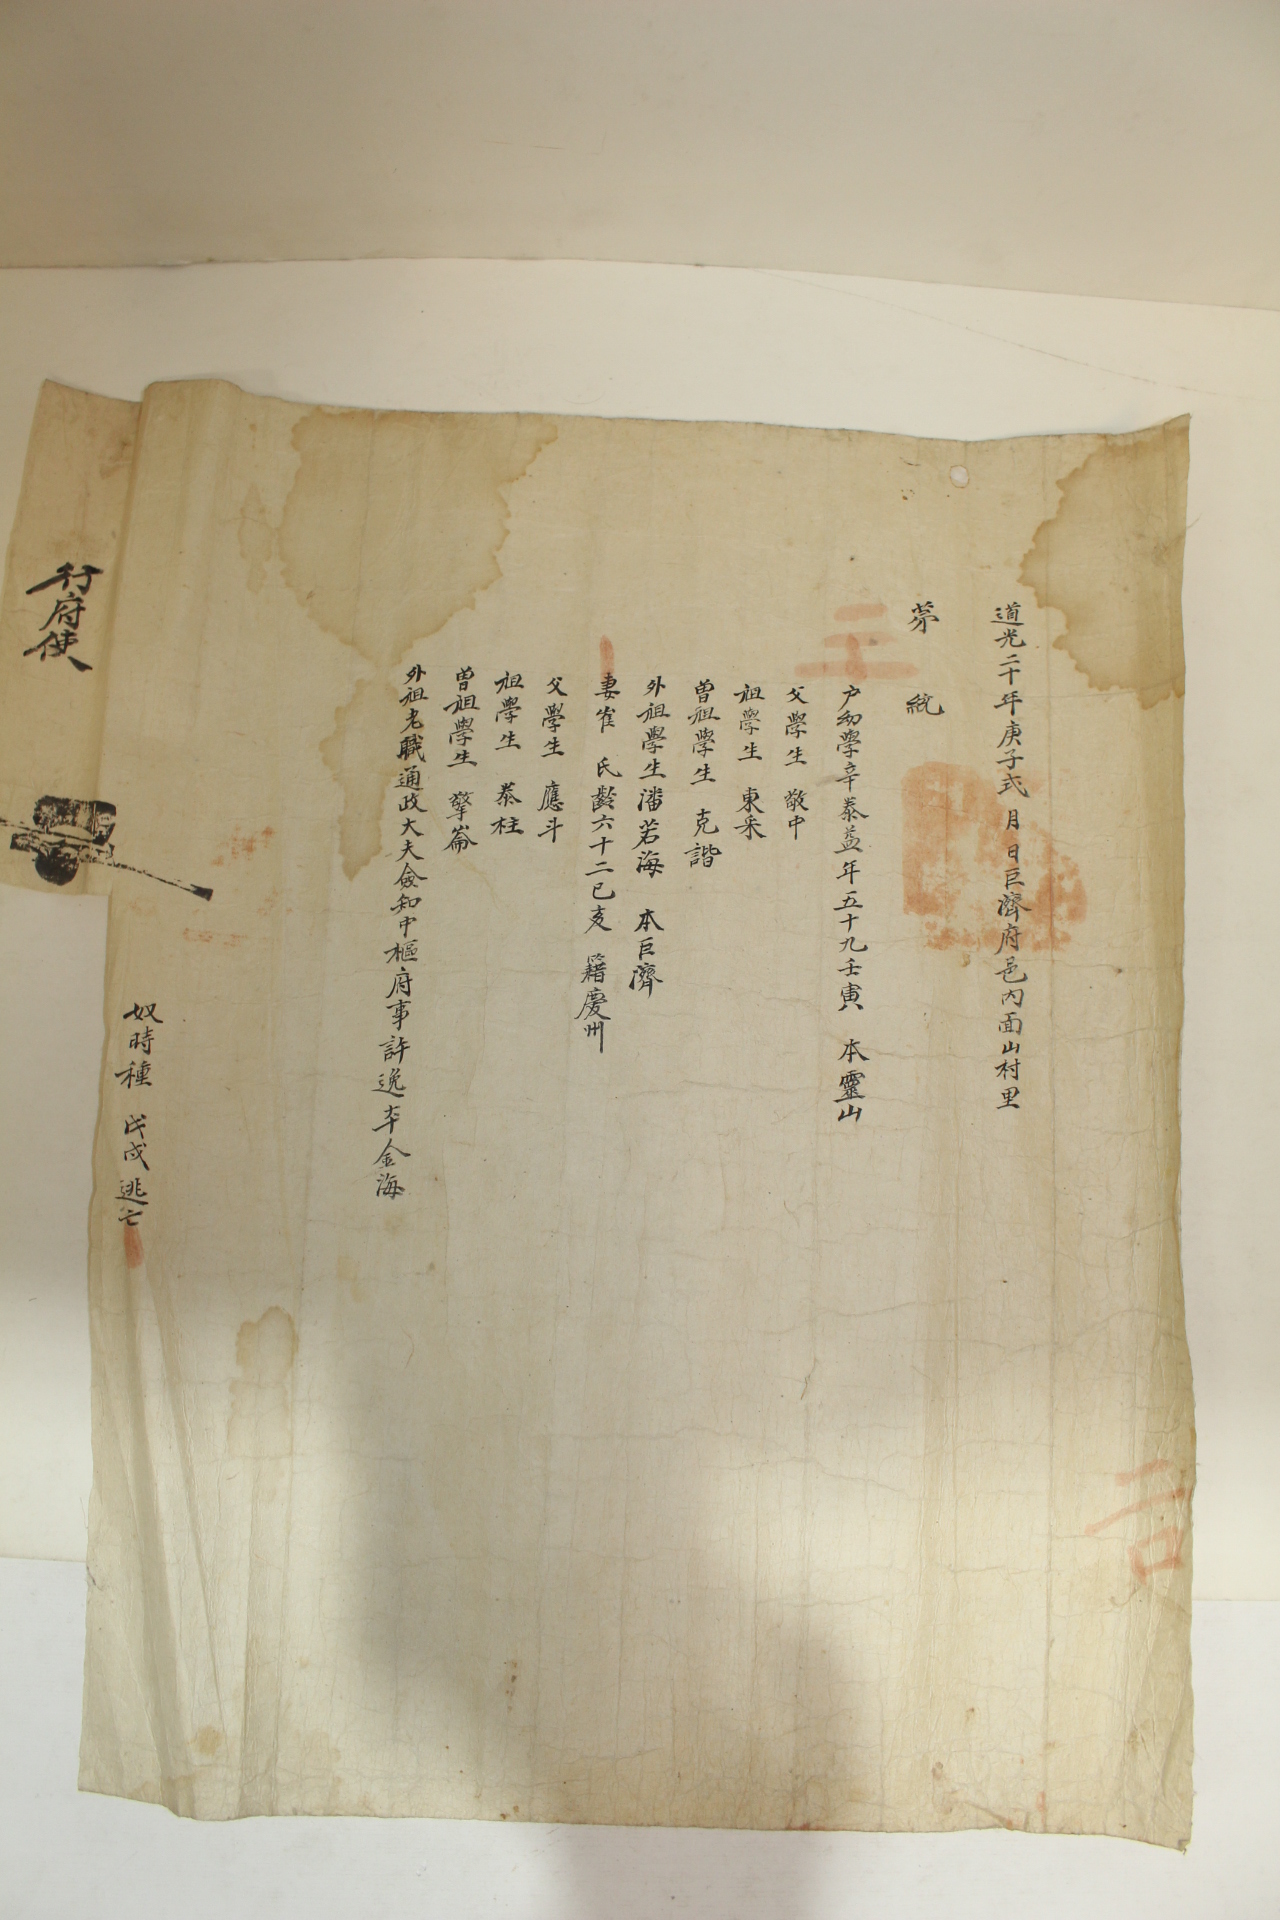 道光二十年庚子式 月 日巨濟府邑內面山村里
第 統
户幼學辛泰益年五十九壬寅 本靈山
父學生 敬中
祖學生 東采
曾祖學生 克諧
外祖學生潘若海 本巨濟
妻崔 氏齡六十二己亥 籍慶州
父學生 應斗
祖學生 泰柱
曾祖學生 擎崙
外祖老職通政大夫僉知中樞府事許逸 本金海
奴時種 戊戌逃亡
行府使